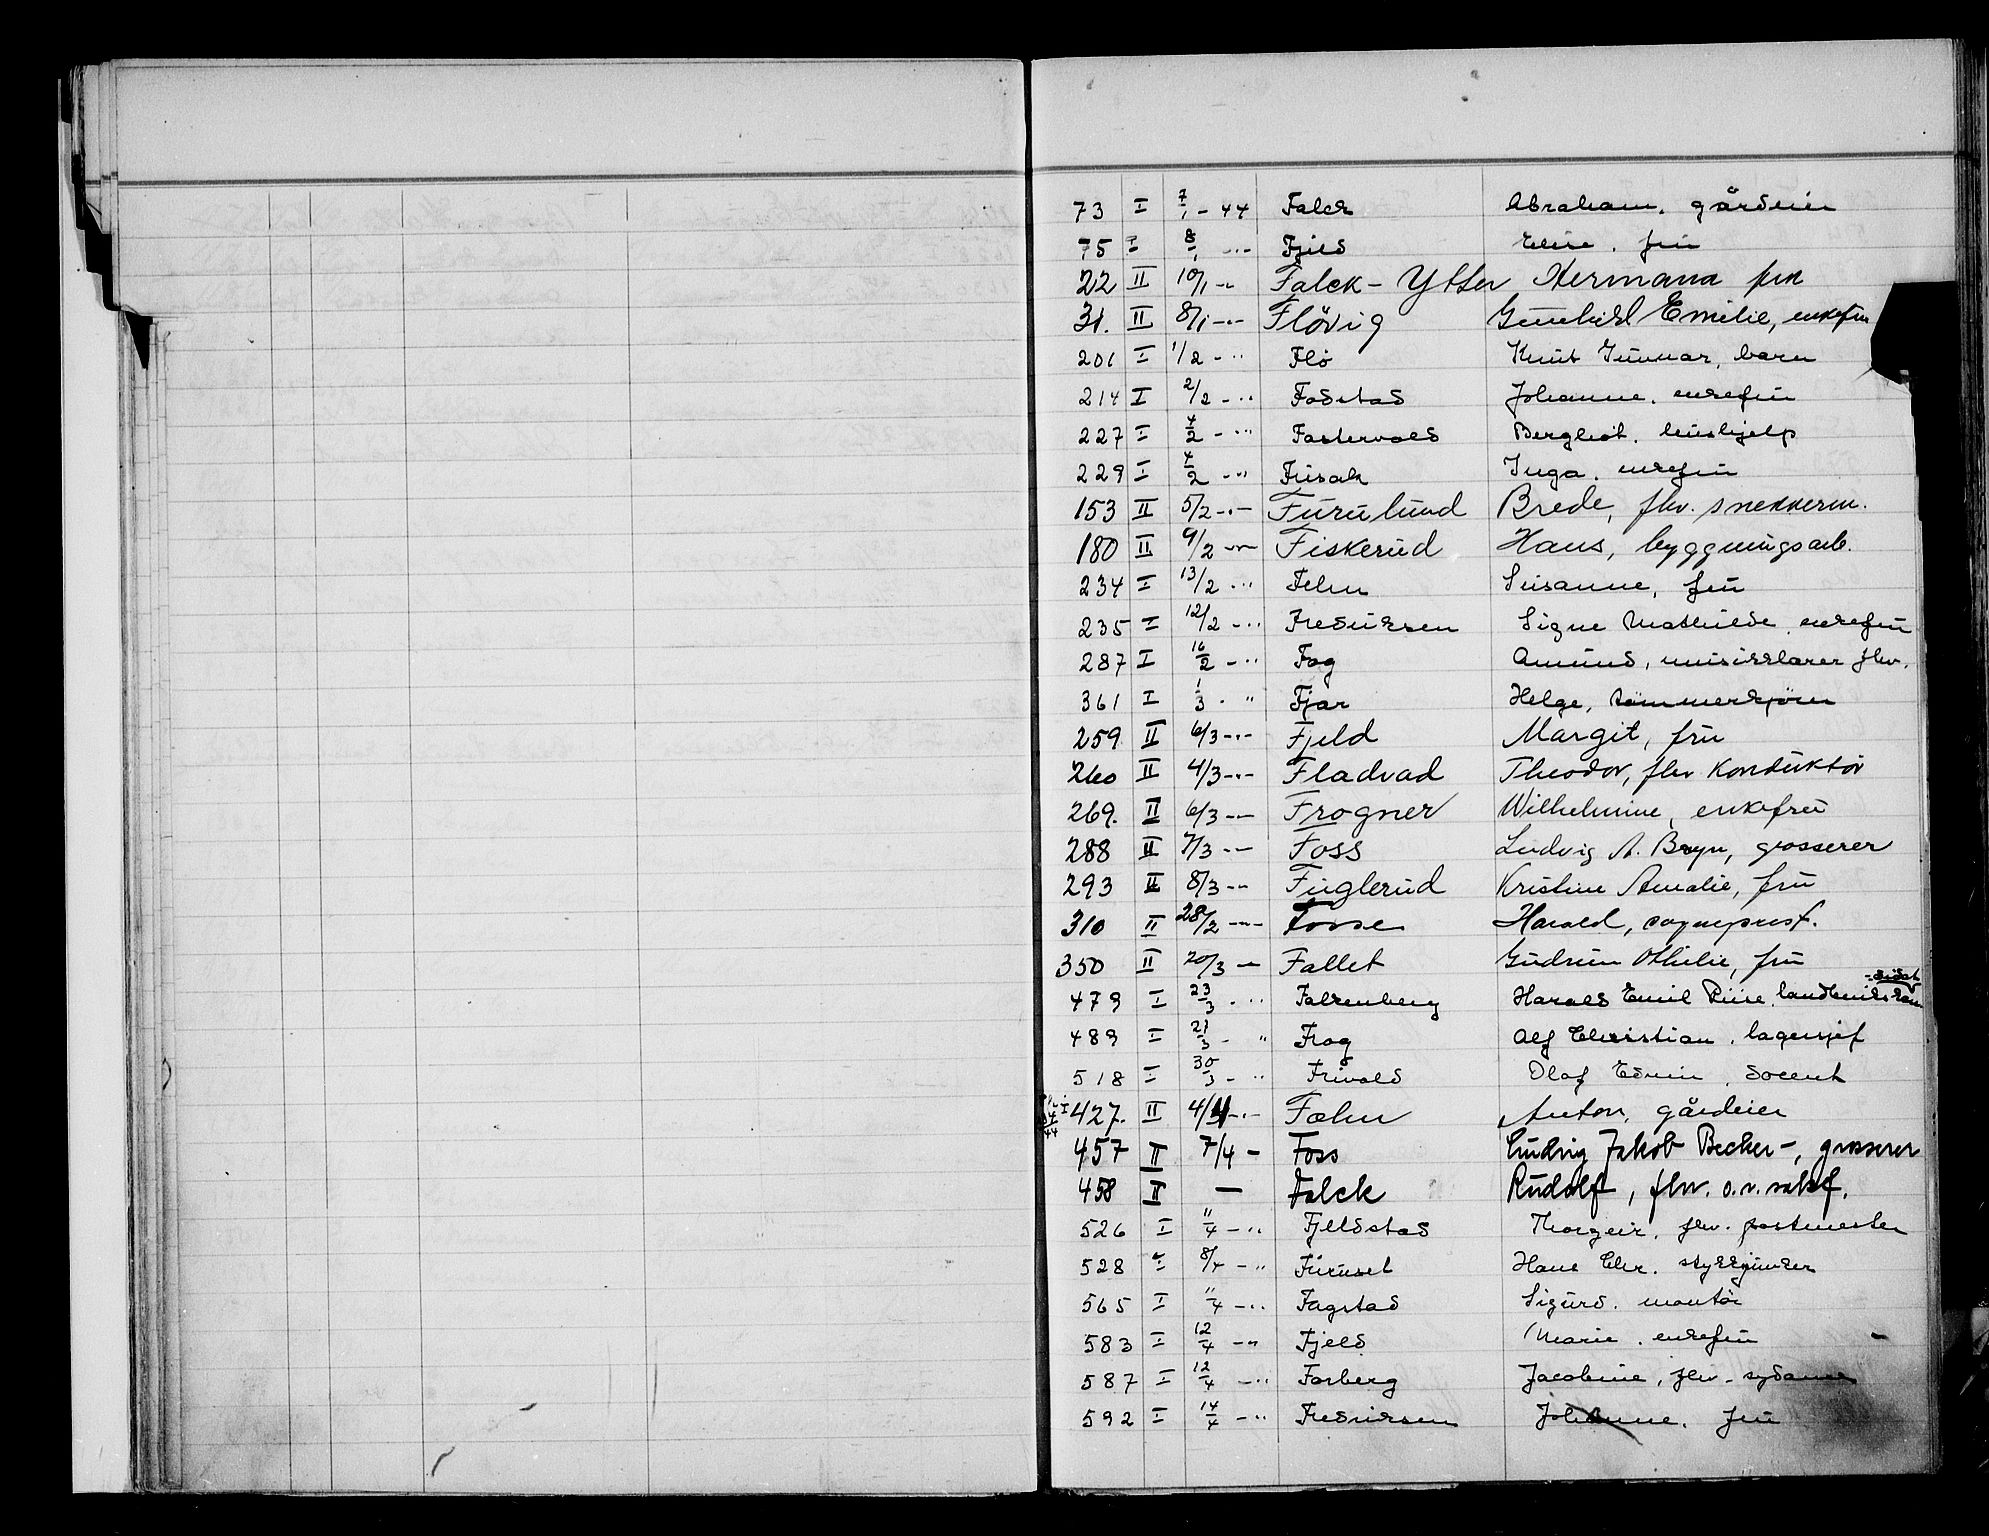 73 I 7/1 - 44 Falck Abraham, gårdeier
75 I 8/1 - " - Fjeld Elise, fru
22 II 10/1 - " Falck-Ytter Hermana frk
31. II 8/1 - " - Flövig Gunhild Emilie, enkefru
201 I 1/2 - " Flö Knut Gunnar, barn
214 I 2/2 - " Fadstad Johanne, enkefru
227 I 4/2 - " Fastervold Bergliot, hushjelp
229 I 4/2 - " Fusak Inga, enkefru
153 II 5/2 - " - Furulund Brede, fhv. snekkerm.
180 II 9/2 - " - Fiskerud Hans, bygningsarb.
234 I 13/2 - " Fehn Susanne, fru
235 I 12/2 - " Fredriksen Signe Mathilde enkefru
287 I 16/2 - " Fog Amund, musikklærer fhv.
361 I 1/3 - " Fjar Helge, tømmerkjører
259 II 6/3 - " - Fjeld Margit, fru
260 II 4/3 - " - Fladvad Theodor, fhv konduktör
269. II 6/3 - " - Frogner Wilhelmine, enkefru
288 II 7/3 - " - Foss Ludvig A. Bryn, grosserer
293 II 8/3 - " - Fuglerud Kristine Amalie, fru
310 II 28/2 - " - Fosse Harald, sogneprest.
350 II 20/3 - Fallet Gudrun Othilie, fru
479 I 23/3 - " Falkenberg Harald Emil Riise, landbruks-
489 I 21/3 - " Frog Alf Christian, lagersjef
518 I 30/3 - " Frivold Olaf Edvin, docent
427. II 4/4 - " - Fæhn Anton, gårdeier
457 II 7/4 - Foss Ludvig Jakob Becker-, grosserer
458 II — Falck Rudolf, fhv. o.r.sakf.
526 I 11/4 - " Fjeldstad Thorgeir, fhv. postmester
528 I 8/4 - " Furuset Hans Chr. stykkjunker
565 I 11/4 - " Fagstad Sigurd, montör
583 I 12/4 - " Fjeld Marie, enkefru
587 I 12/4 - " Forberg Jacobine, fhv. sydame
592 I 14/4 - " Fredriksen Johanne, fru